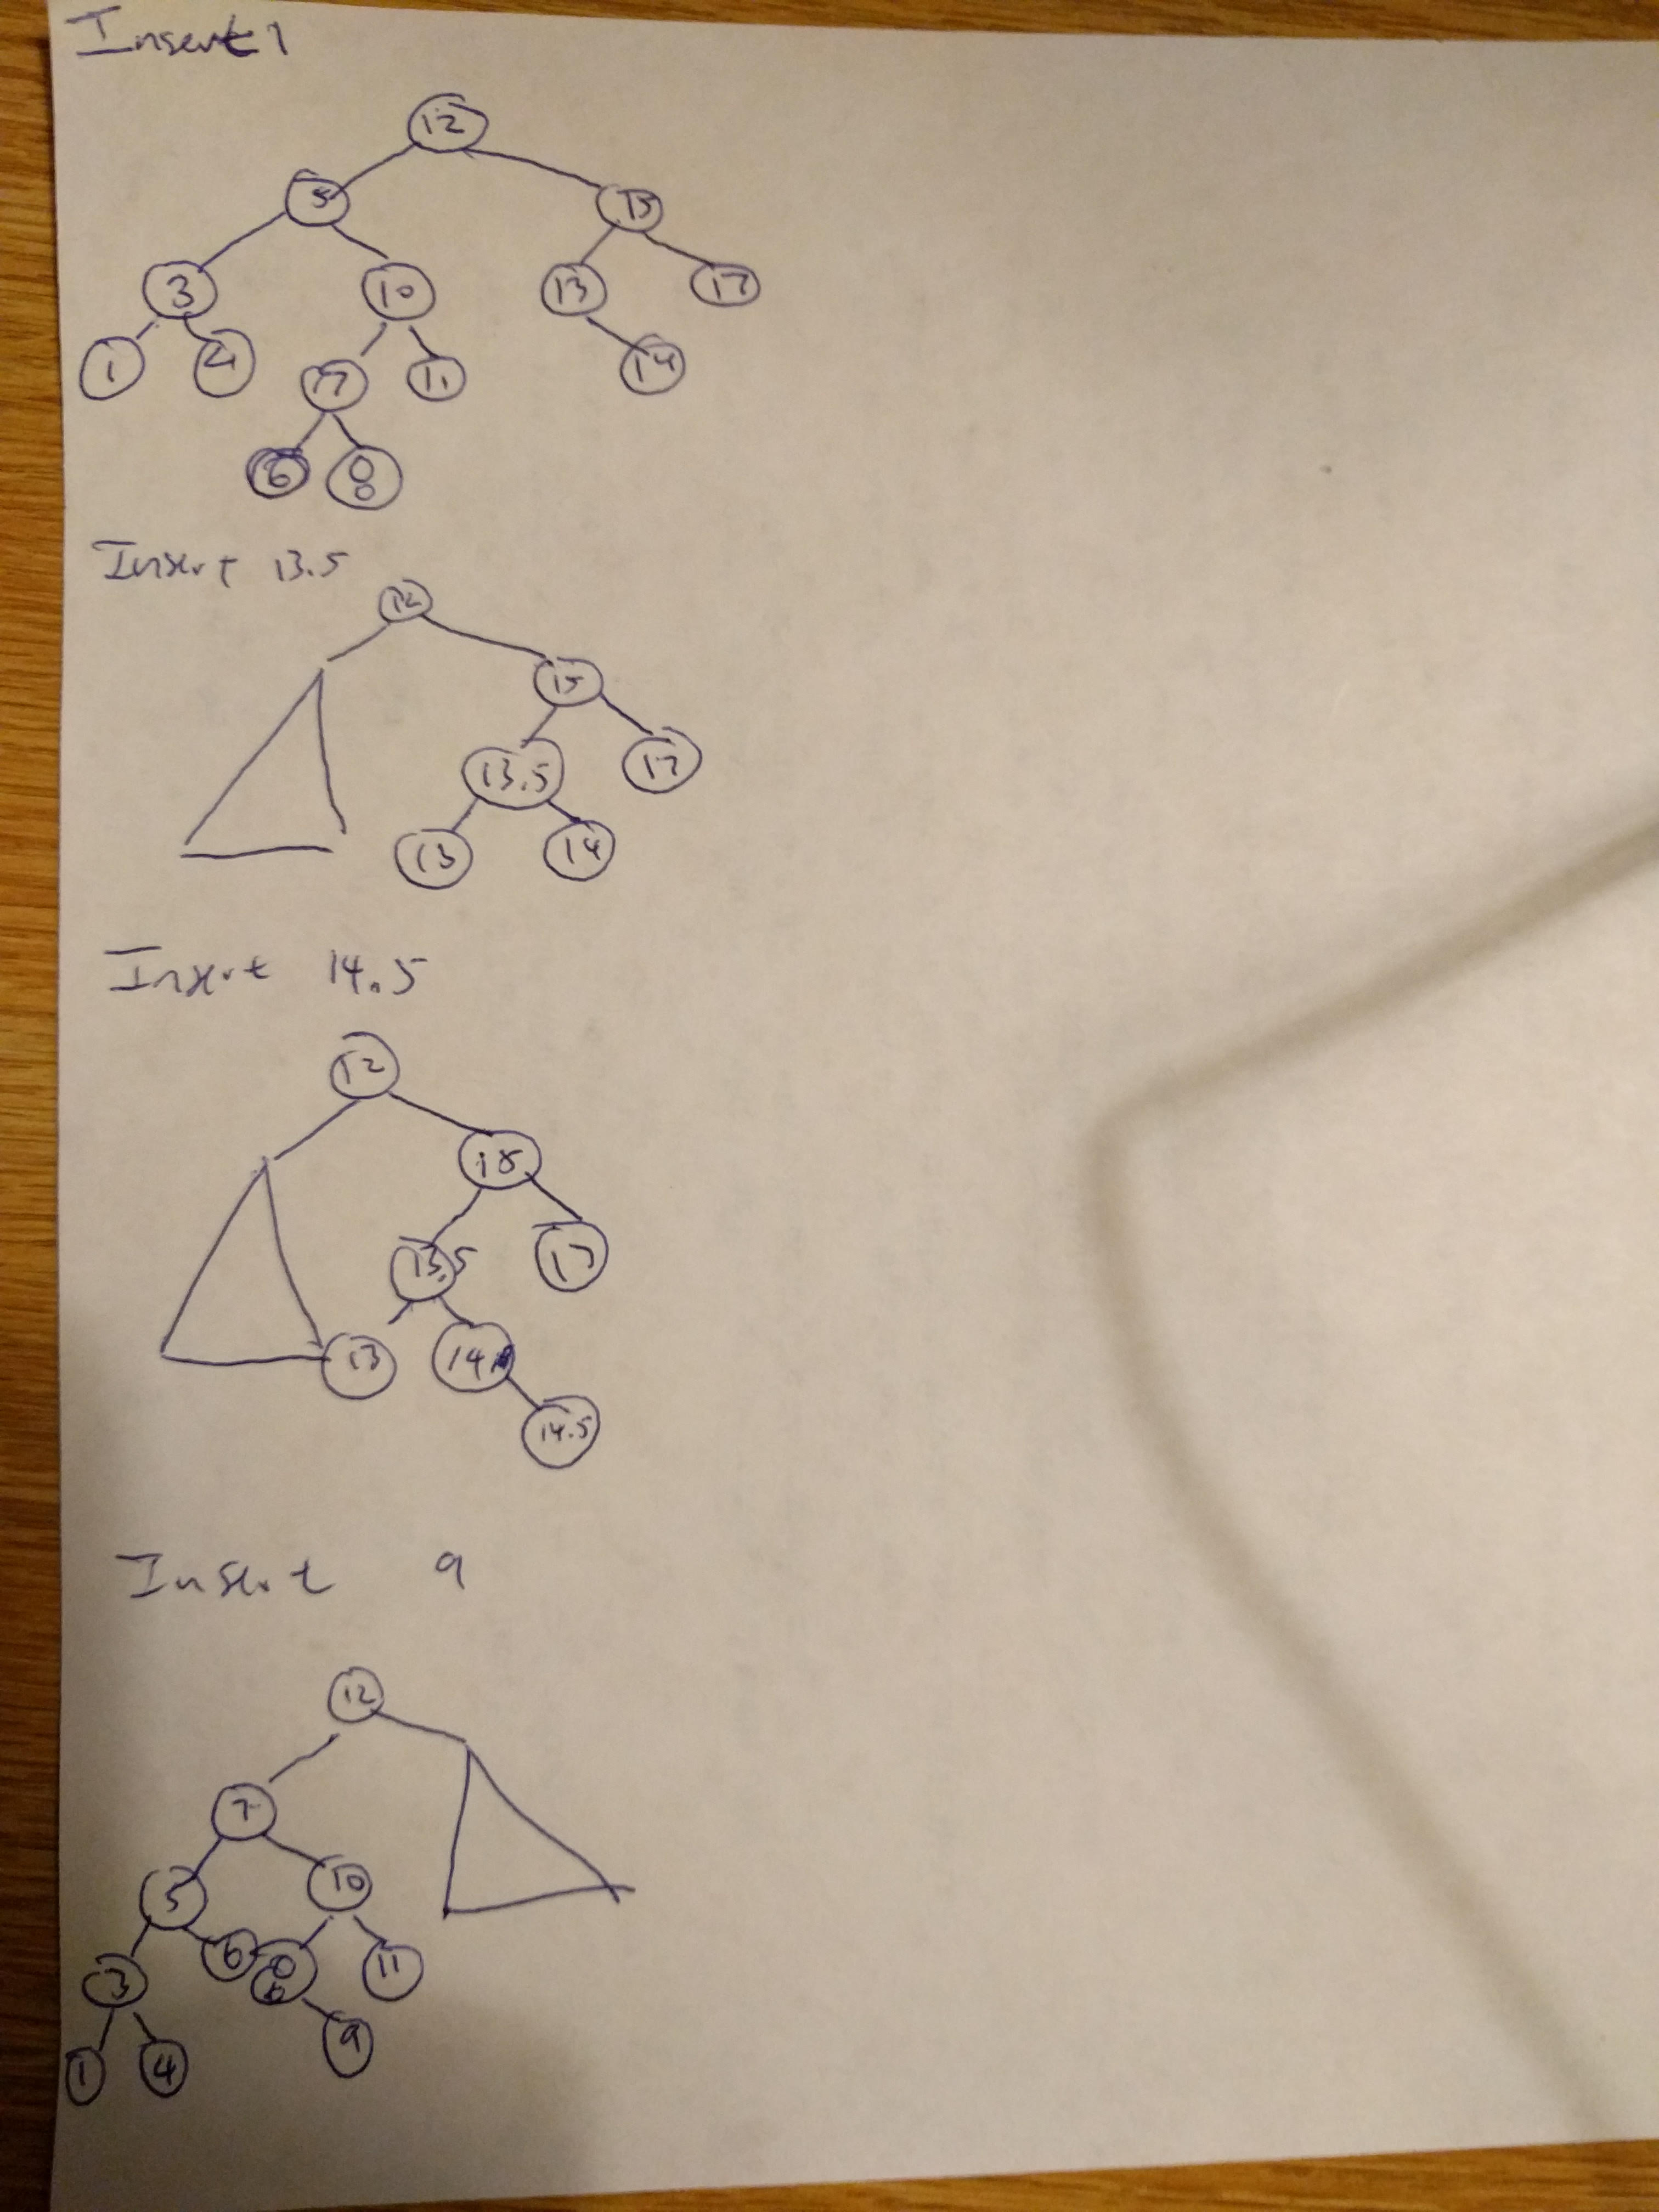 Insert 1
12
5 15
3 10 13 17
1 4 7 11 14
6 8
Insert 13.5
12
15
13.5 17
13 14
Insert 14.5
12
15
13.5 17
13 14
14.5
Insert 9
12
7
5 10
3 6 8 11
1 4 9